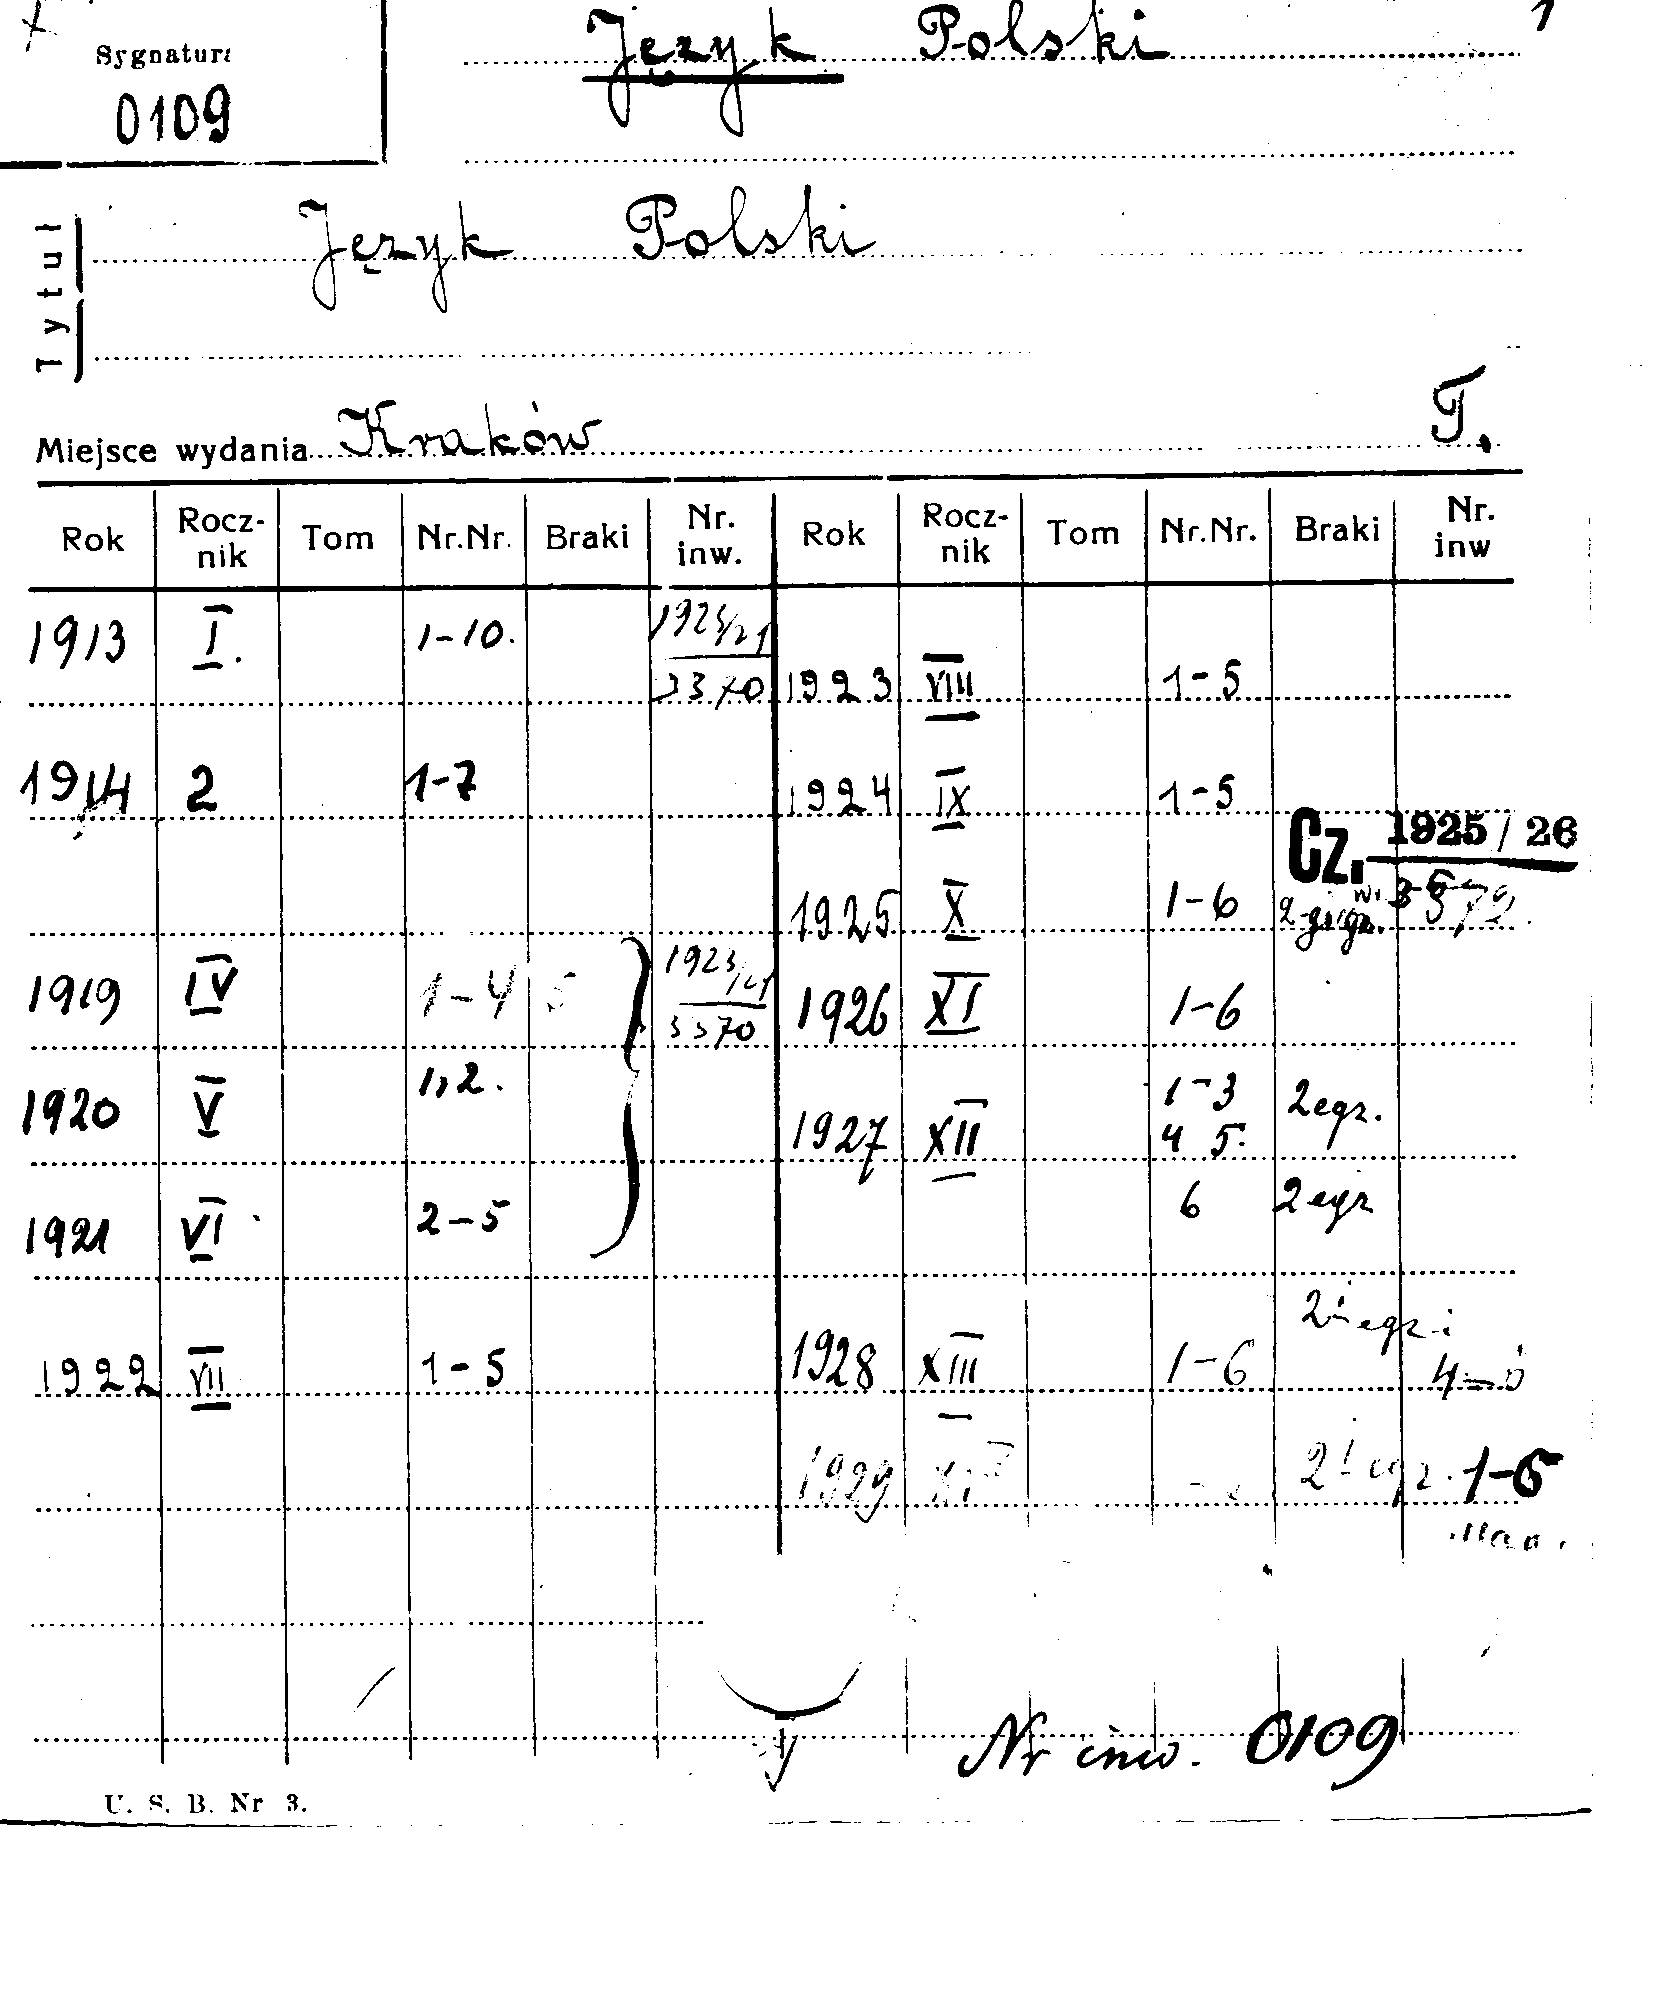 1
Sygnatura
0109
Język Polski
Tytuł
Język Polski
Miejsce wydania Kraków T.
Rok Rocz-nik Tom Nr.Nr. Braki Nr. inw. Rok Rocz-nik Tom Nr.Nr. Braki Nr. inw
1913 I. 1-10. 3370 1923 VIII 1-5
1914 2 1-7 1924 IX 1-5
Cz. 1925/26
1925 X 1-6
1919 IV 1-4 5 3370 1926 XI 1-6
1920 V 1,2. 1927 XII 1-3 2egz.
4 5.
1921 VI 2-5 6 2egz
1922 VII 1-5 1928 XIII 1-6 2 egz:
1929 2 egz. 1-6
Nr inw. 0109
U. S. B. Nr 3.